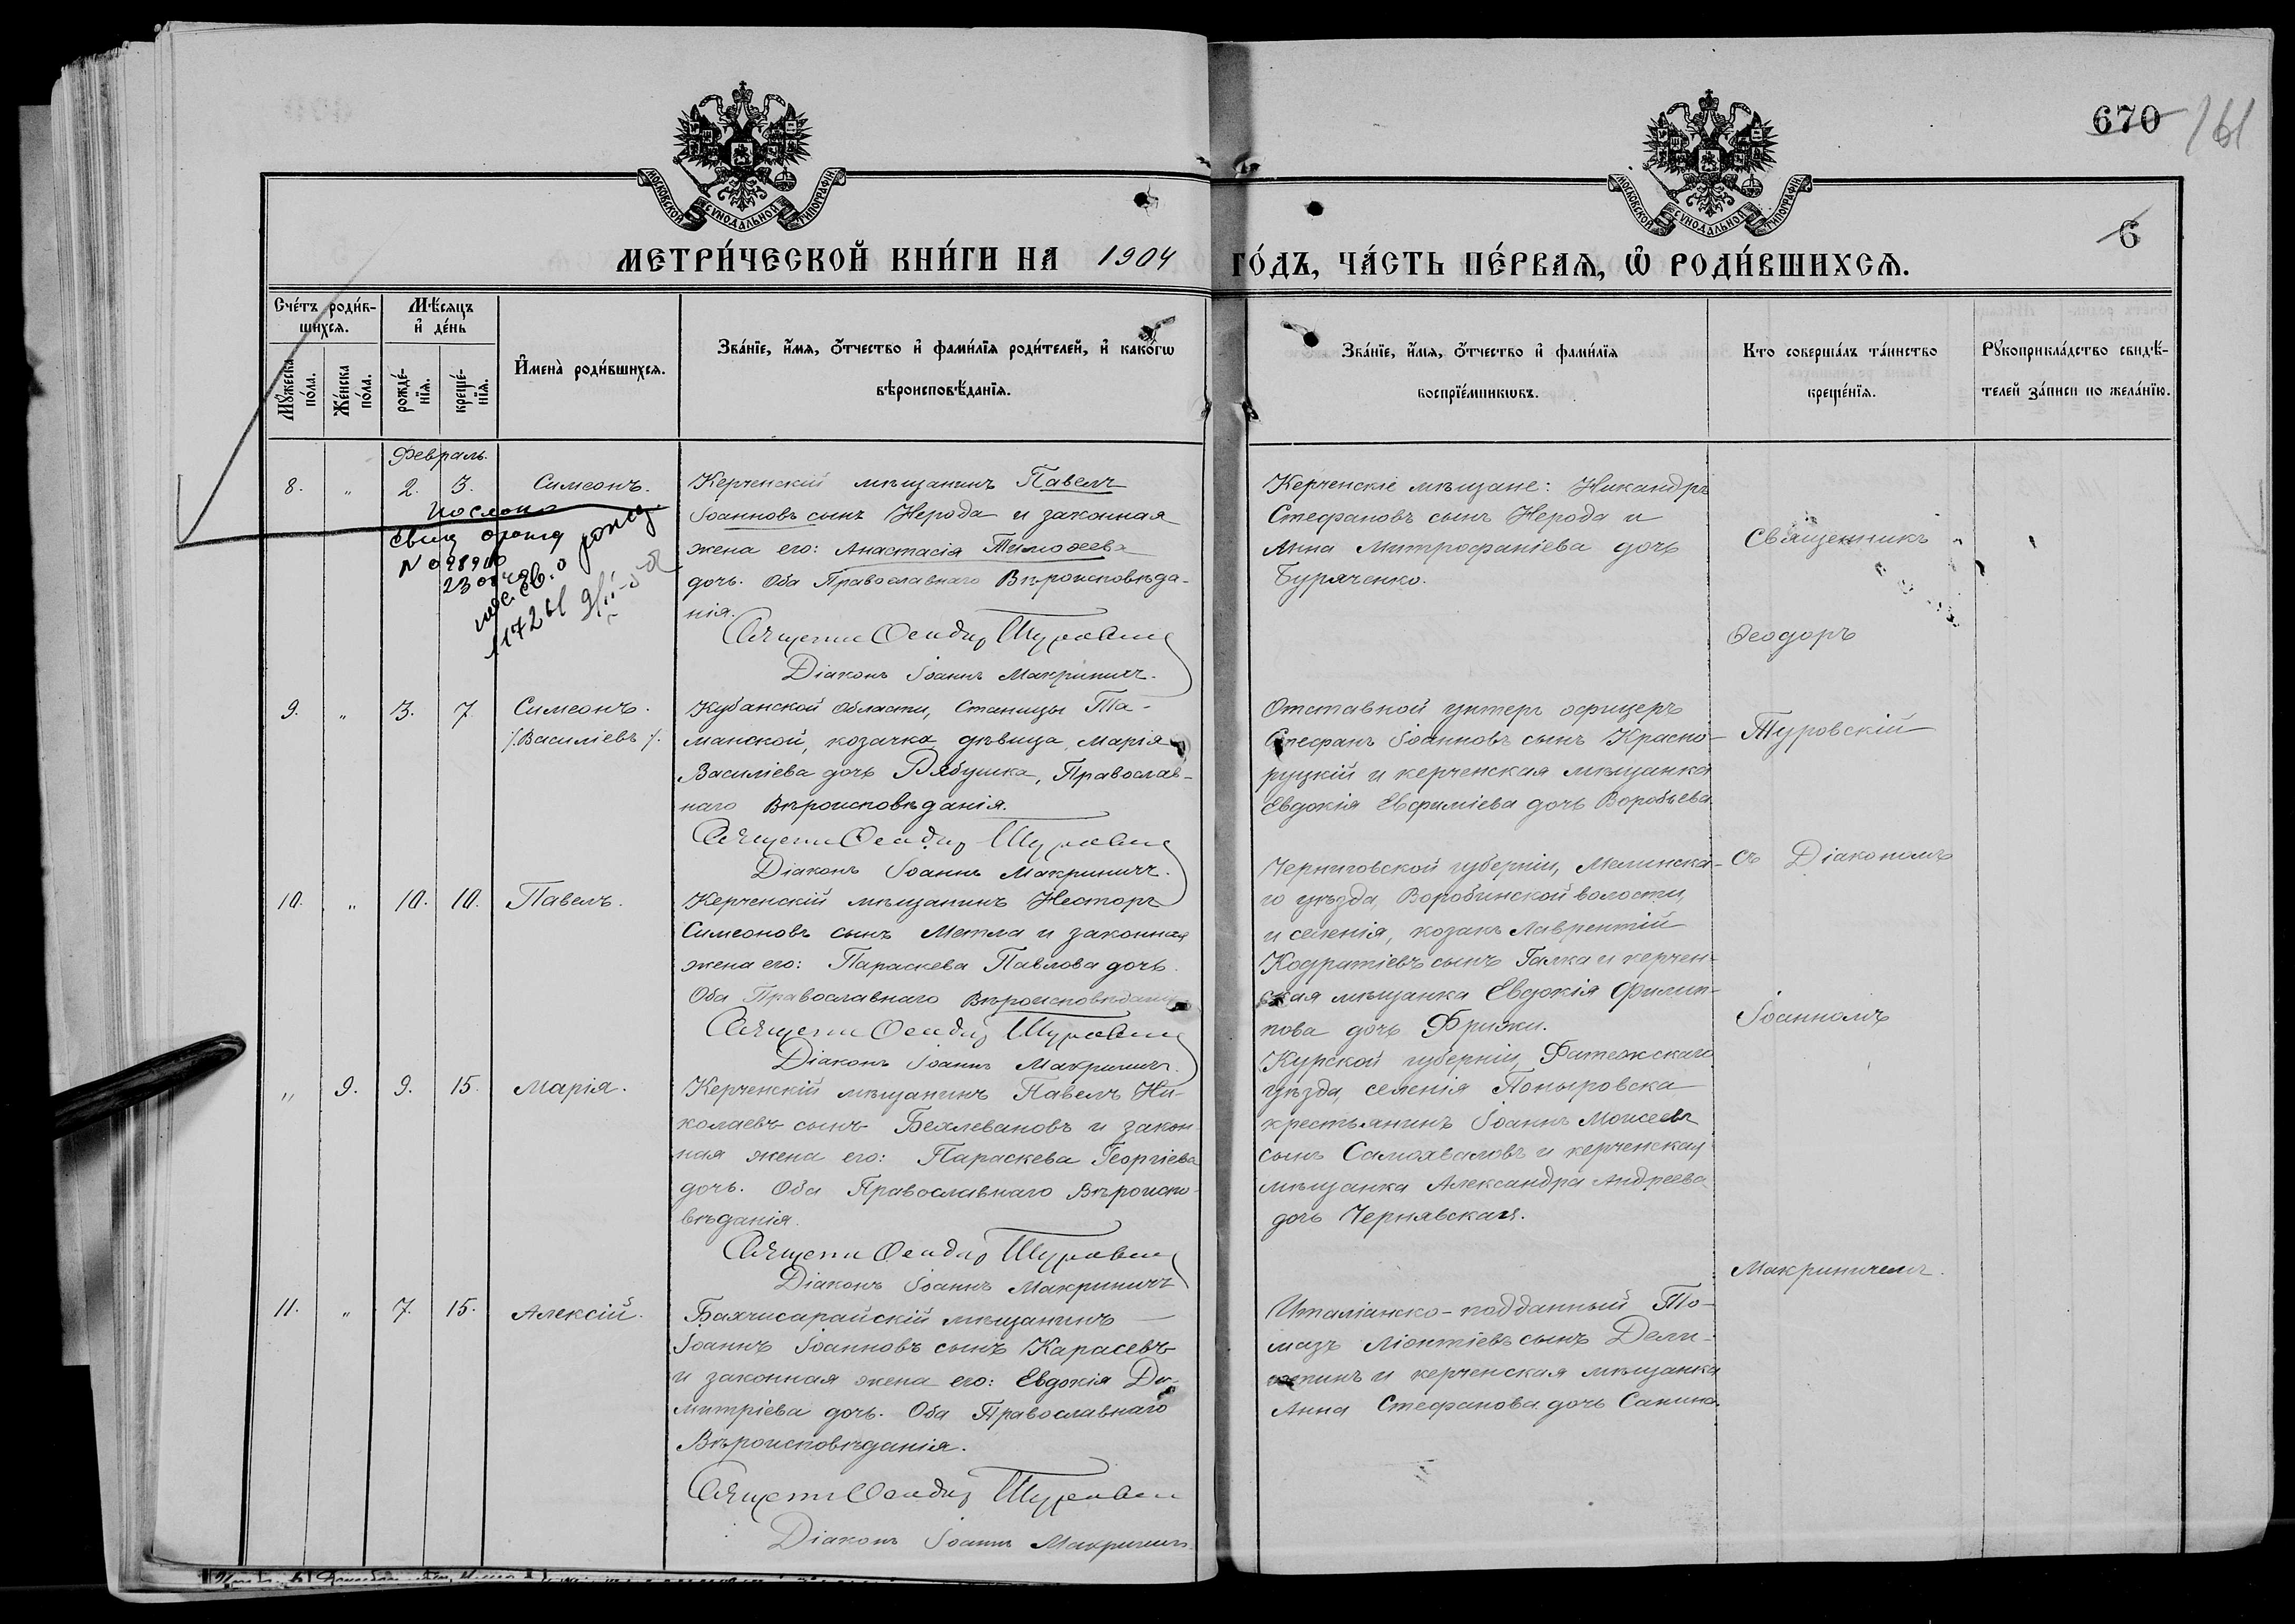 МОСКОВСКОЙ СУНОДАЛЬНОЙ ТИПОГРАФІИ
МОСКОВСКОЙ СУНОДАЛЬНОЙ ТИПОГРАФІИ
670
161
6
МЕТРИ́ЧЕСКОЙ КНИ́ГИ НА 1904 ГО́ДЪ, ЧА́СТЬ ПЕ́РВАѦ, Ѡ РОДИ́ВШИХСѦ.
Сче́тъ роди́в-
шихсѧ.
Мꙋ́жеска по́ла.
Же́нска по́ла.
Мѣ́сѧцъ
и҆ де́нь
рожде́-
нїѧ.
креще́-
нїѧ.
И҆мена̀ роди́вшихсѧ.
Зва́нїе, и҆́мѧ, ѻ҆́тчество и҆ фами́лїѧ роди́телей, и҆ како́гѡ
вѣроисповѣ́данїѧ.
Зва́нїе, и҆́мѧ, ѻ҆́тчество и҆ фами́лїѧ
воспрїе́мникѡвъ.
Кто соверша́лъ та́инство
креще́нїѧ.
Рꙋкоприкла́дство свидѣ́-
телей за́писи по жела́нїю.
Февраль.
8. " 2. 3. Симеонъ.
Керченскій мѣщанинъ Павелъ
Іоанновъ сынъ Нерода и законная
жена его: Анастасія Тимоѳеева
дочь. Оба Православнаго Вѣроисповѣда-
нія.
Священн Ѳеодор Туровскій
Діаконъ Іоаннъ Макриничъ.
Керченскіе мѣщане: Никандръ
Стефановъ сынъ Нерода и
Анна Митрофаніева дочь
Буряченко.
9. " 3. 7. Симеонъ.
/.Василіевъ/.
Кубанской области, Станицы Та-
манской, козачка дѣвица Марія
Василіева дочь Рябушка, Православ-
наго Вѣроисповѣданія.
Священн Ѳеодор Туровскій
Діаконъ Іоаннъ Макриничъ.
Отставной унтеръ офицеръ
Стефанъ Іоанновъ сынъ Красно-
руцкій и керченская мѣщанка
Евдокія Евфиміева дочь Воробьева.
10. " 10. 10. Павелъ.
Керченскій мѣщанинъ Несторъ
Симеоновъ сынъ Метла и законная
жена его: Параскева Павлова дочь.
Оба Православнаго Вѣроисповѣданія
Священн Ѳеодор Туровскій
Діаконъ Іоаннъ Макриничъ.
Черниговской губерніи, Мглинска-
го уѣзда, Воробинской волости,
и селенія, козакъ Лаврентій
Кодратіевъ сынъ Галка и керчен-
ская мѣщанка Евдокія Филип-
пова дочь Фрижи.
" 9. 9. 15. Марія.
Керченскій мѣщанинъ Павелъ Ни-
колаевъ сынъ Бехлевановъ и закон
ная жена его: Параскева Георгіева
дочь. Оба Православнаго Вѣроиспо-
вѣданія.
Священн Ѳеодор Туровскій
Діаконъ Іоаннъ Макриничъ
Курской губерніи, Фатежскаго
уѣзда, селенія Поныровска
крестьянинъ Іоаннъ Моисеевъ
сынъ Самохваловъ и керченская
мѣщанка Александра Андреева
дочь Чернявская.
11. " 7. 15. Алексій.
Бахчисарайскій мѣщанинъ
Іоаннъ Іоанновъ сынъ Карасевъ
и законная жена его: Евдокія Ди-
митріева дочь. Оба Православнаго
Вѣроисповѣданія.
Священн Ѳеодор Туровскій
Діаконъ Іоаннъ Макриничъ
Италіанско-подданный То-
мазъ Ліонтіевъ сынъ
и керченская мѣщанка
Анна Стефанова дочь Санина.
Священникъ
Ѳеодоръ
Туровскій
съ Діакономъ
Іоанномъ
Макриничемъ.